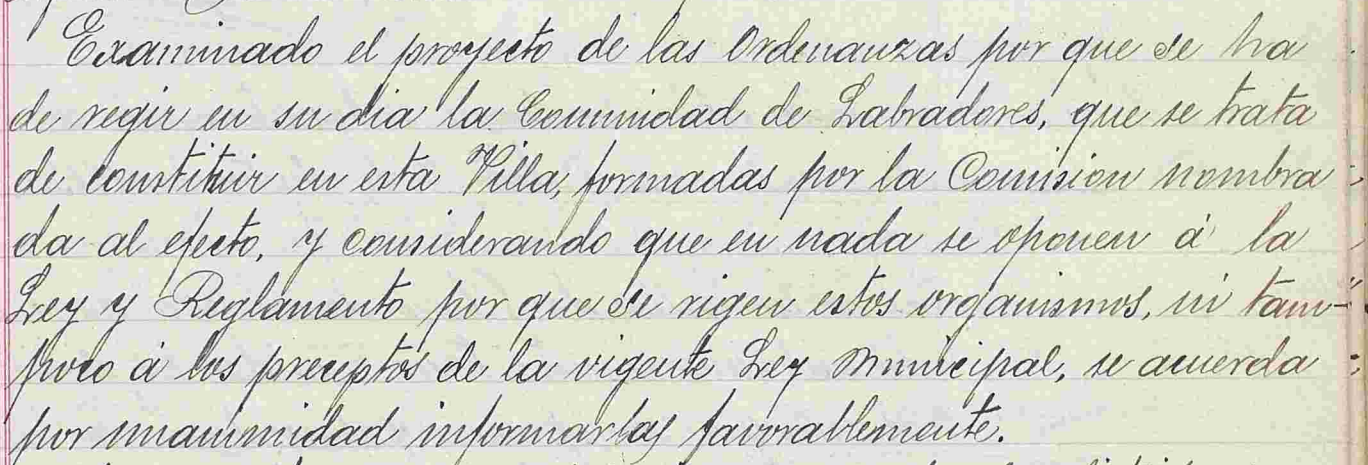 Examinado el proyecto de las Ordenanzas por que se ha
de regir en su dia la Comunidad de Labradores, que se trata
de constituir en esta Villa, formadas por la Comision nombra
da al efecto, y considerando que en nada se oponen á la
Ley y Reglamento por que se rigen estos organismos, ni tam-
poco á los preceptos de la vigente Ley Municipal, se acuerda
por unanimidad informarlas favorablemente.